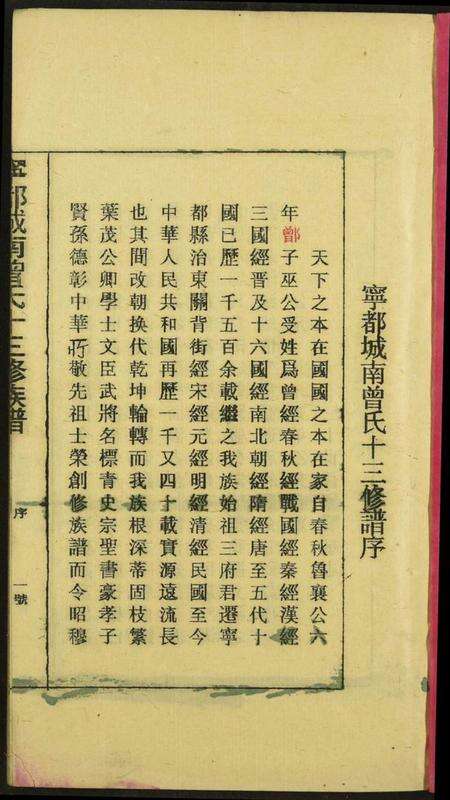 寧都城南曾氏十三修譜序
天下之本在國國之本在家自春秋魯襄公六
年鄫子巫公受姓爲曾經春秋經戰國經秦經漢經
三國經晋及十六國經南北朝經隋經唐至五代十
國已歷一千五百余載繼之我族始祖三府君遷寧
都縣治東關背街經宋經元經明經清經民國至今
中華人民共和國再歷一千又四十載實源遠流長
也其間改朝換代乾坤輪轉而我族根深蒂固枝繁
葉茂公卿學士文臣武將名標青史宗聖書豪孝子
賢孫德彰中華所敬先祖士榮創修族譜而令昭穆
寧都城南曾氏十三修族譜
序
一號